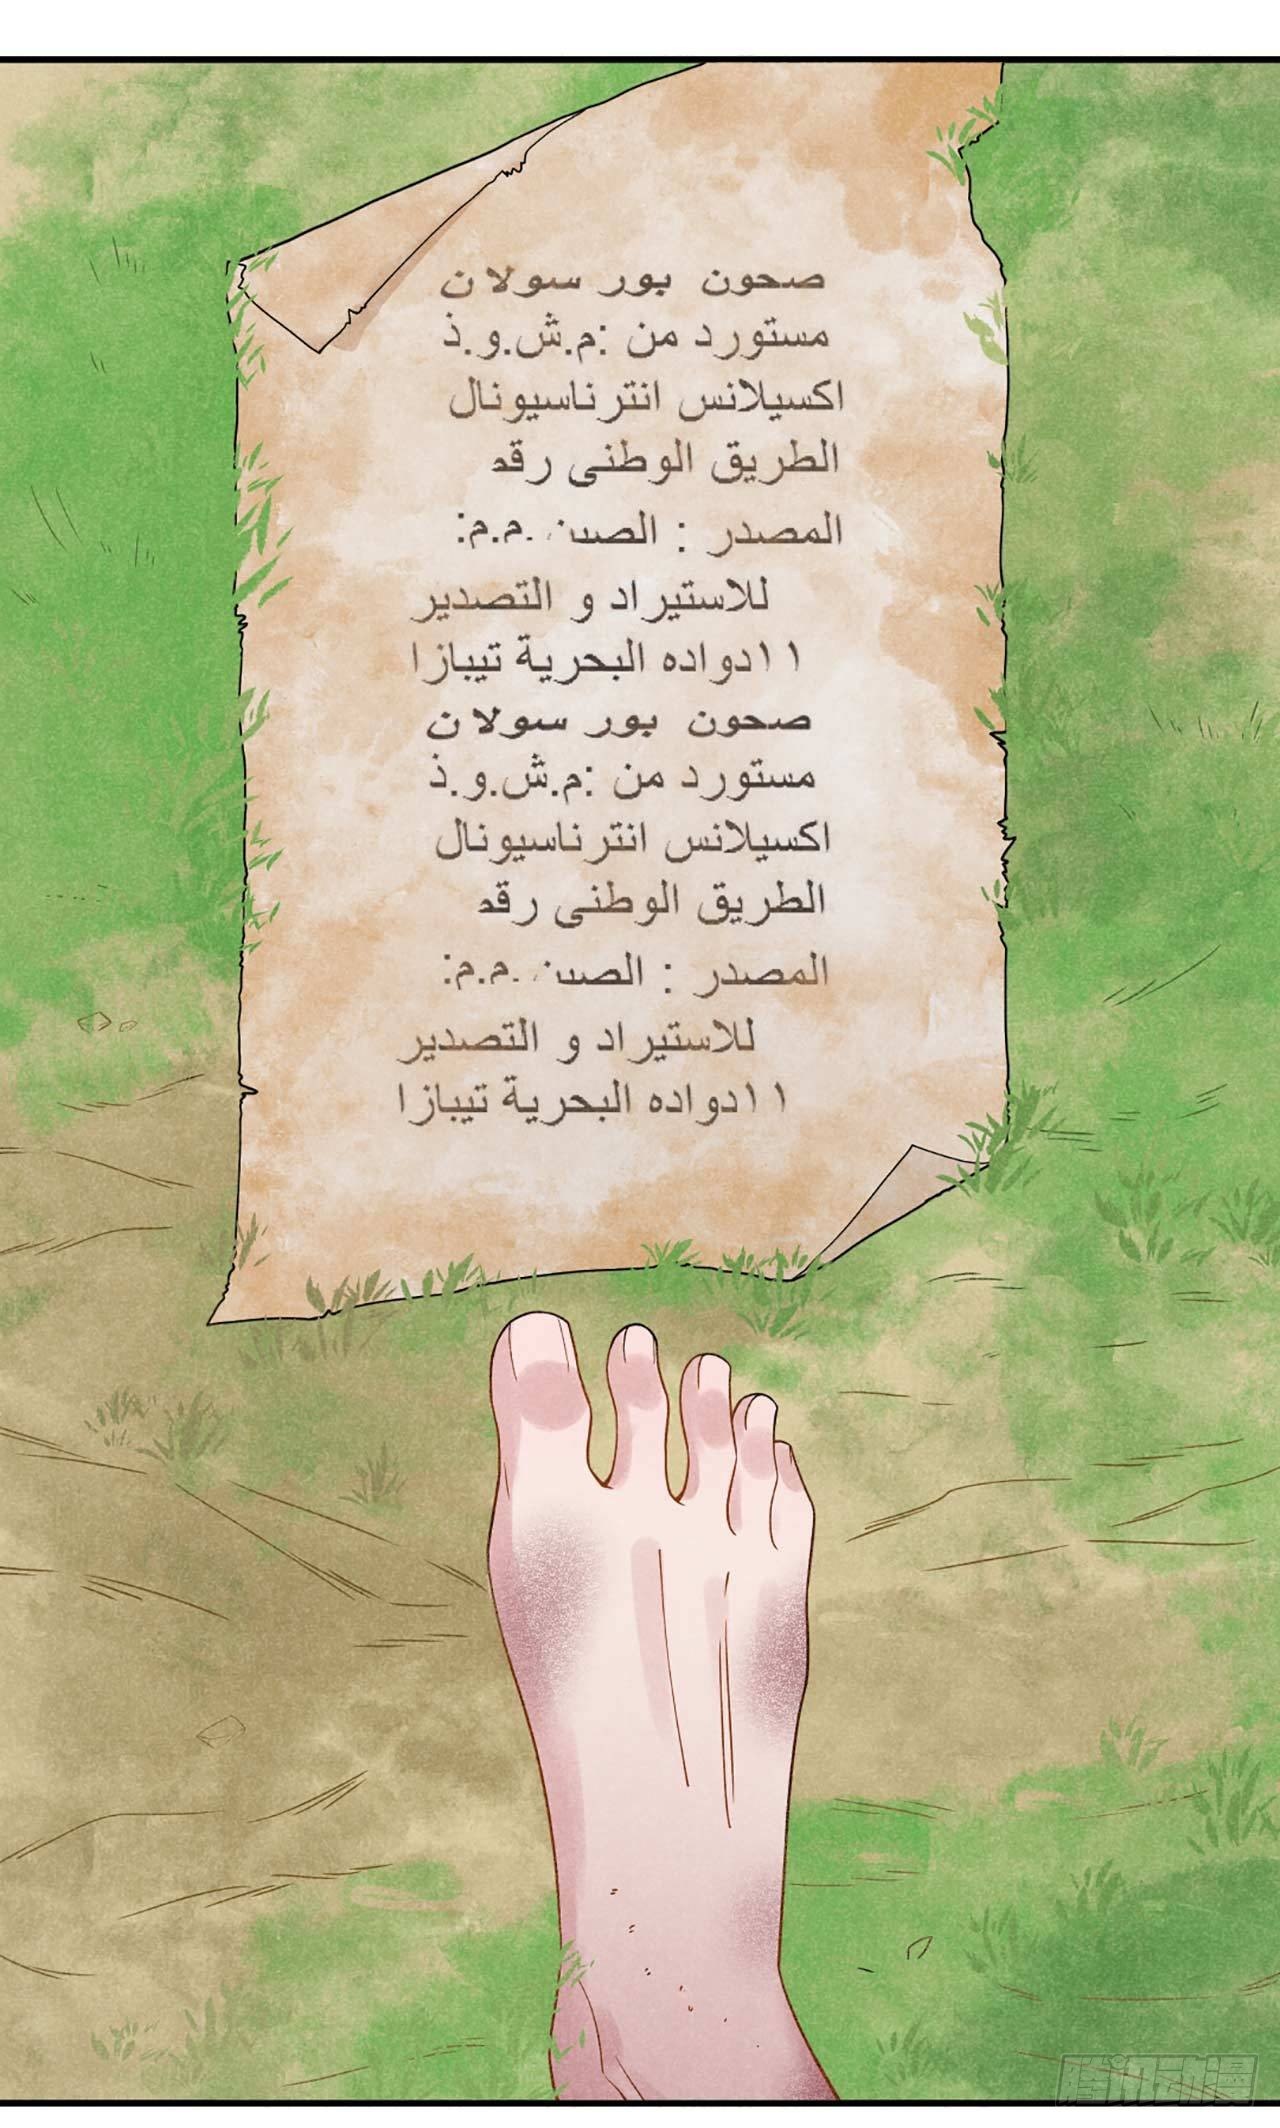 صحون بور سولان
مستورد من :م.ش.و.ذ
اكسيلانس انترناسيونال
الطريق الوطنى رقم
المصدر : الصين .م.م:
للاستيراد و التصدير
١١دواده البحرية تيبازا
صحون بور سولان
مستورد من :م.ش.و.ذ
اكسيلانس انترناسيونال
الطريق الوطنى رقم
المصدر : الصين .م.م:
للاستيراد و التصدير
١١دواده البحرية تيبازا
腾讯动漫